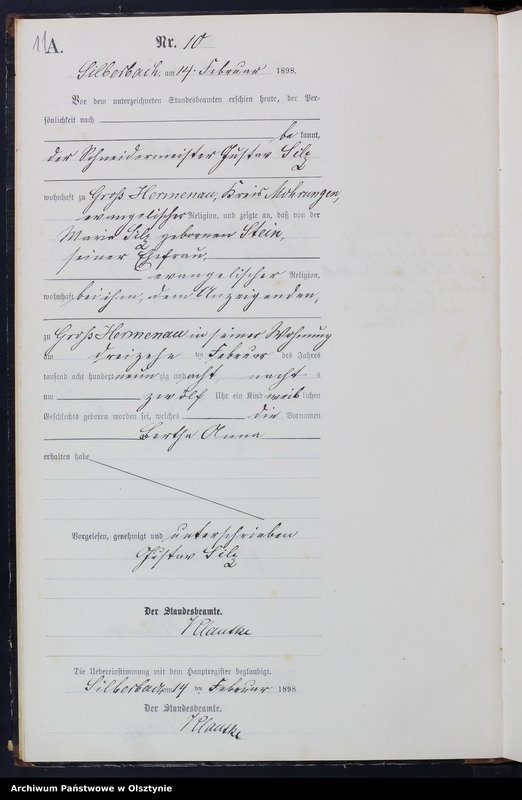 11
A.
Nr. 10
Silberbach, am 14. Februar 1898.
Vor dem unterzeichneten Standesbeamten erschien heute, der Per-
sönlichkeit nach
be kannt,
der Schneidermeister Gustav Silz
wohnhaft zu Groß Hermenau, Kreis Mohrungen,
evangelischer Religion, und zeigte an, daß von der
Marie Silz gebornen Stein,
seiner Ehefrau,
evangelischer Religion,
wohnhaft bei ihm, dem Anzeigenden,
zu Groß Hermenau in seiner Wohnung
am dreizehn ten Februar des Jahres
tausend acht hundert neun zig und acht nachts
um zwölf Uhr ein Kind weib lichen
Geschlechts geboren worden sei, welches die Vornamen
Bertha Anna
erhalten habe
Vorgelesen, genehmigt und unterschrieben
Gustav Silz
Der Standesbeamte.
Klautke
Die Uebereinstimmung mit dem Hauptregister beglaubigt.
Silberbach, am 14 ten Februar 1898
Der Standesbeamte.
Klautke
Archiwum Państwowe w Olsztynie